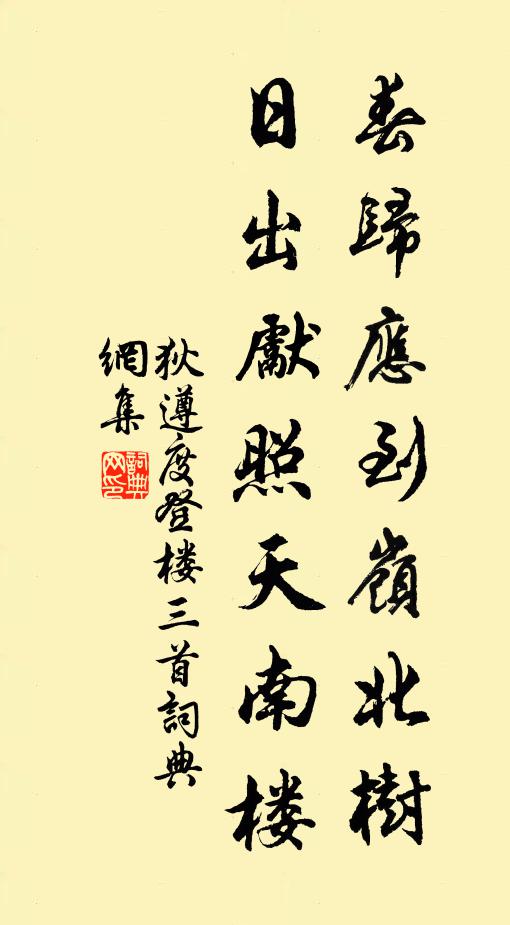 春歸應到嶺北樹
日出獻照天南楼
狄遵度登楼三首詞典
網集
詞典
网印